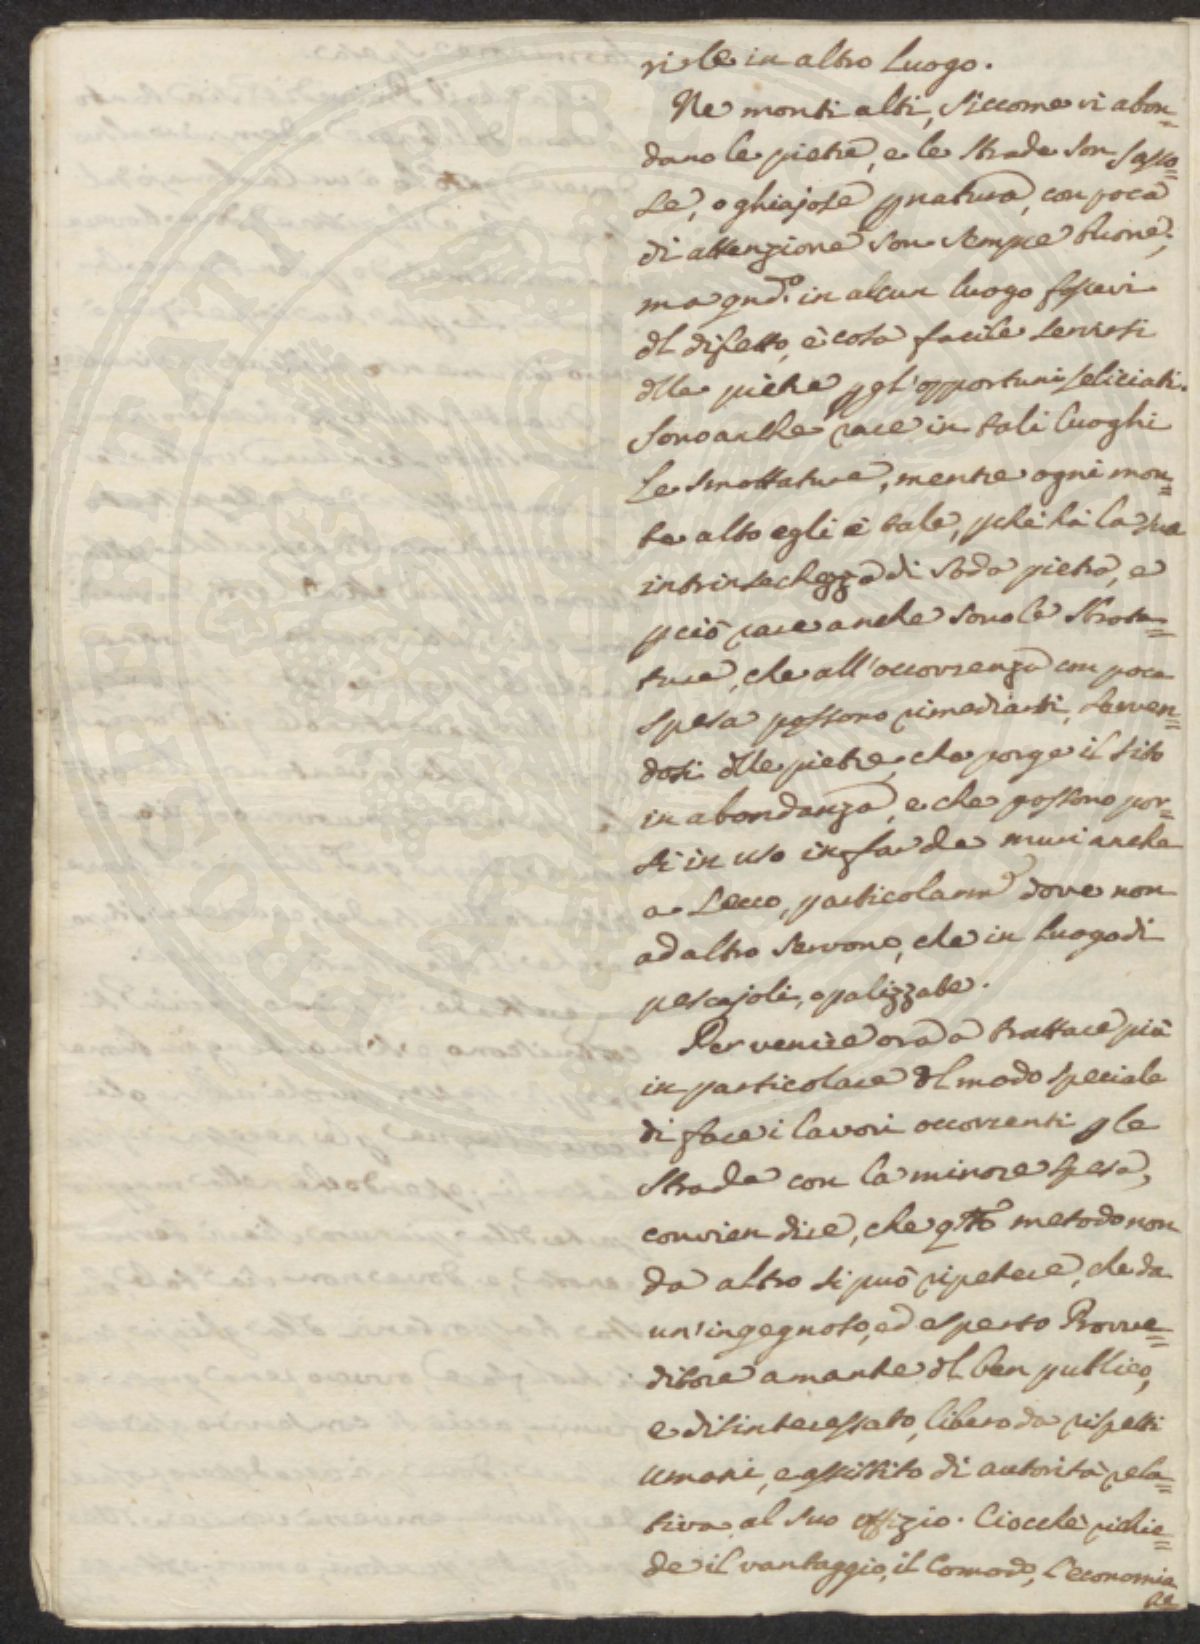 rirle in altro luogo.
Ne monti alti, siccome vi abon=
dano le pietre, e le strade son sasso=
se, o ghiajose p natura, con poca
di attenzione son sempre buone;
ma qndo. in alcun luogo fossevi
dl difetto, è cosa facile servirsi
dlle pietre p gl'opportuni seliciati.
Sono anche rare in tali luoghi
le smottature, mentre ogni mon=
te alto egli è tale, pchè hà la sua
intrinsechezza di soda pietra, e
pciò rare anche sono le
ture, che all'occorrenza con poca
spesa possono rimediarsi, serven=
dosi dlle pietre, che porge il sito
in abondanza, e che possono por=
si in uso in far de muri anche
a secco, particolarmte dove non
ad altro servono, che in luogo di
pescajoli, o palizzate.
Per venire ora a trattare più
in particolare dl modo speciale
di fare i lavori occorrenti p le
strade con la minore spesa,
convien dire, che qsto metodo non
da altro si può ripetere, che da
un'ingegnoso, ed esperto Provve=
ditore amante dl ben publico,
e disinteressato, libero da rispetti
umani, e assistito di autorità rela=
tiva al suo offizio. Ciocchè richie=
de il vantaggio, il comodo, l'economia
PRO VERITATE